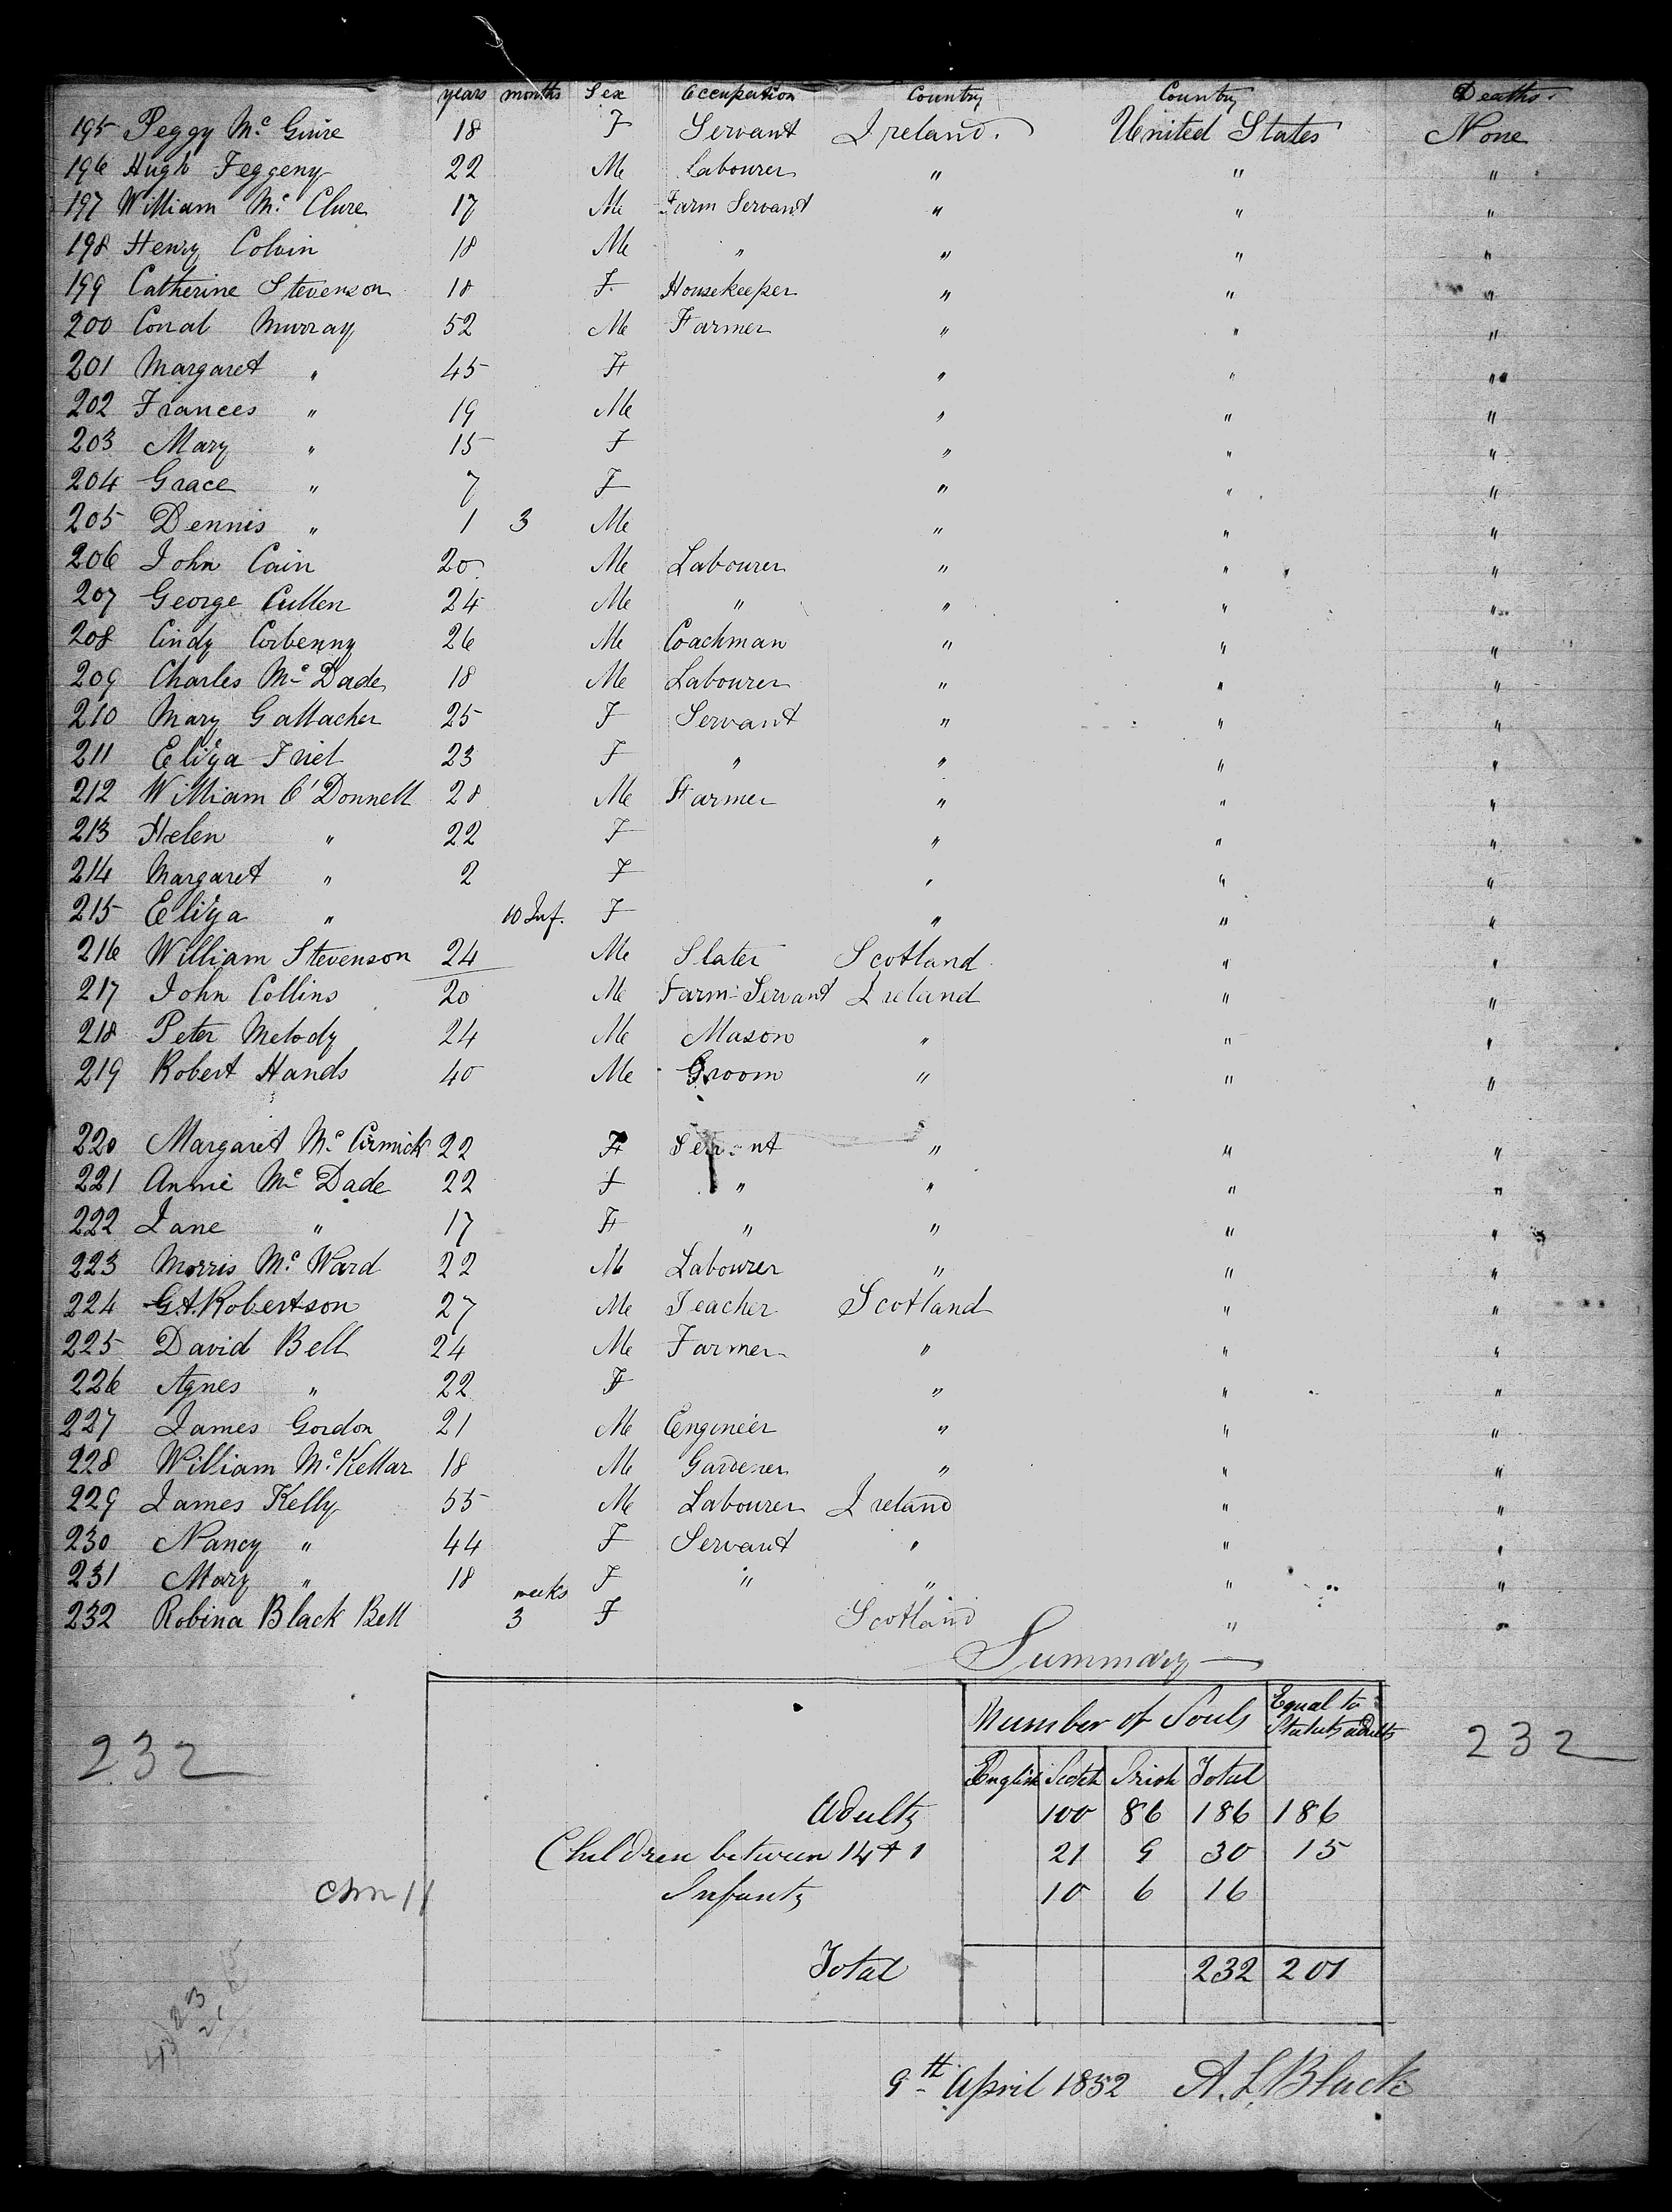 years months Sex Occupation Country Country Deaths
195 Peggy Mc Guire 18 F Servant Ireland. United States None
196 Hugh Feggeny 22 M Labourer " " "
197 William Mc Clure 17 M Farm Servant " " "
198 Henry Colvin 18 M " " " "
199 Catherine Stevenson 18 F Housekeeper " " "
200 Conal Murray 52 M Farmer " " "
201 Margaret " 45 F " " "
202 Frances " 19 M " " "
203 Mary " 15 F " " "
204 Grace " 7 F " " "
205 Dennis " 1 3 M " " "
206 John Cain 20 M Labourer " " "
207 George Cullen 24 M " " " "
208 Corbenny 26 M Coachman " " "
209 Charles Mc Dade 18 M Labourer " " "
210 Mary Gallacher 25 F Servant " " "
211 Eliza Friel 23 F " " " "
212 William O'Donnell 28 M Farmer " " "
213 Helen " 22 F " " "
214 Margaret " 2 F " " "
215 Eliza " 10 Inf. F " " "
216 William Stevenson 24 M Slater Scotland " "
217 John Collins 20 M Farm Servant Ireland " "
218 Peter Melody 24 M Mason " " "
219 Robert Hands 40 M Groom " " "
220 Margaret Mc Cormick 22 F Servant " " "
221 Annie Mc Dade 22 F " " " "
222 Jane " 17 F " " " "
223 Morris Mc Ward 22 M Labourer " " "
224 G.A. Robertson 27 M Teacher Scotland " "
225 David Bell 24 M Farmer " " "
226 Agnes " 22 F " " "
227 James Gordon 21 M Engineer " " "
228 William McKellar 18 M Gardener " " "
229 James Kelly 55 M Labourer Ireland " "
230 Nancy " 44 F Servant " " "
231 Mary " 18 F " " " "
weeks
232 Robina Black Bell 3 F Scotland " "
Summary
Number of Souls Equal to Statute adults
232 232
English Scotch Irish Total
Adults 100 86 186 186
Children between 14 & 1 21 9 30 15
Infants 10 6 16
Total 232 201
9th April 1852 A. L. Black